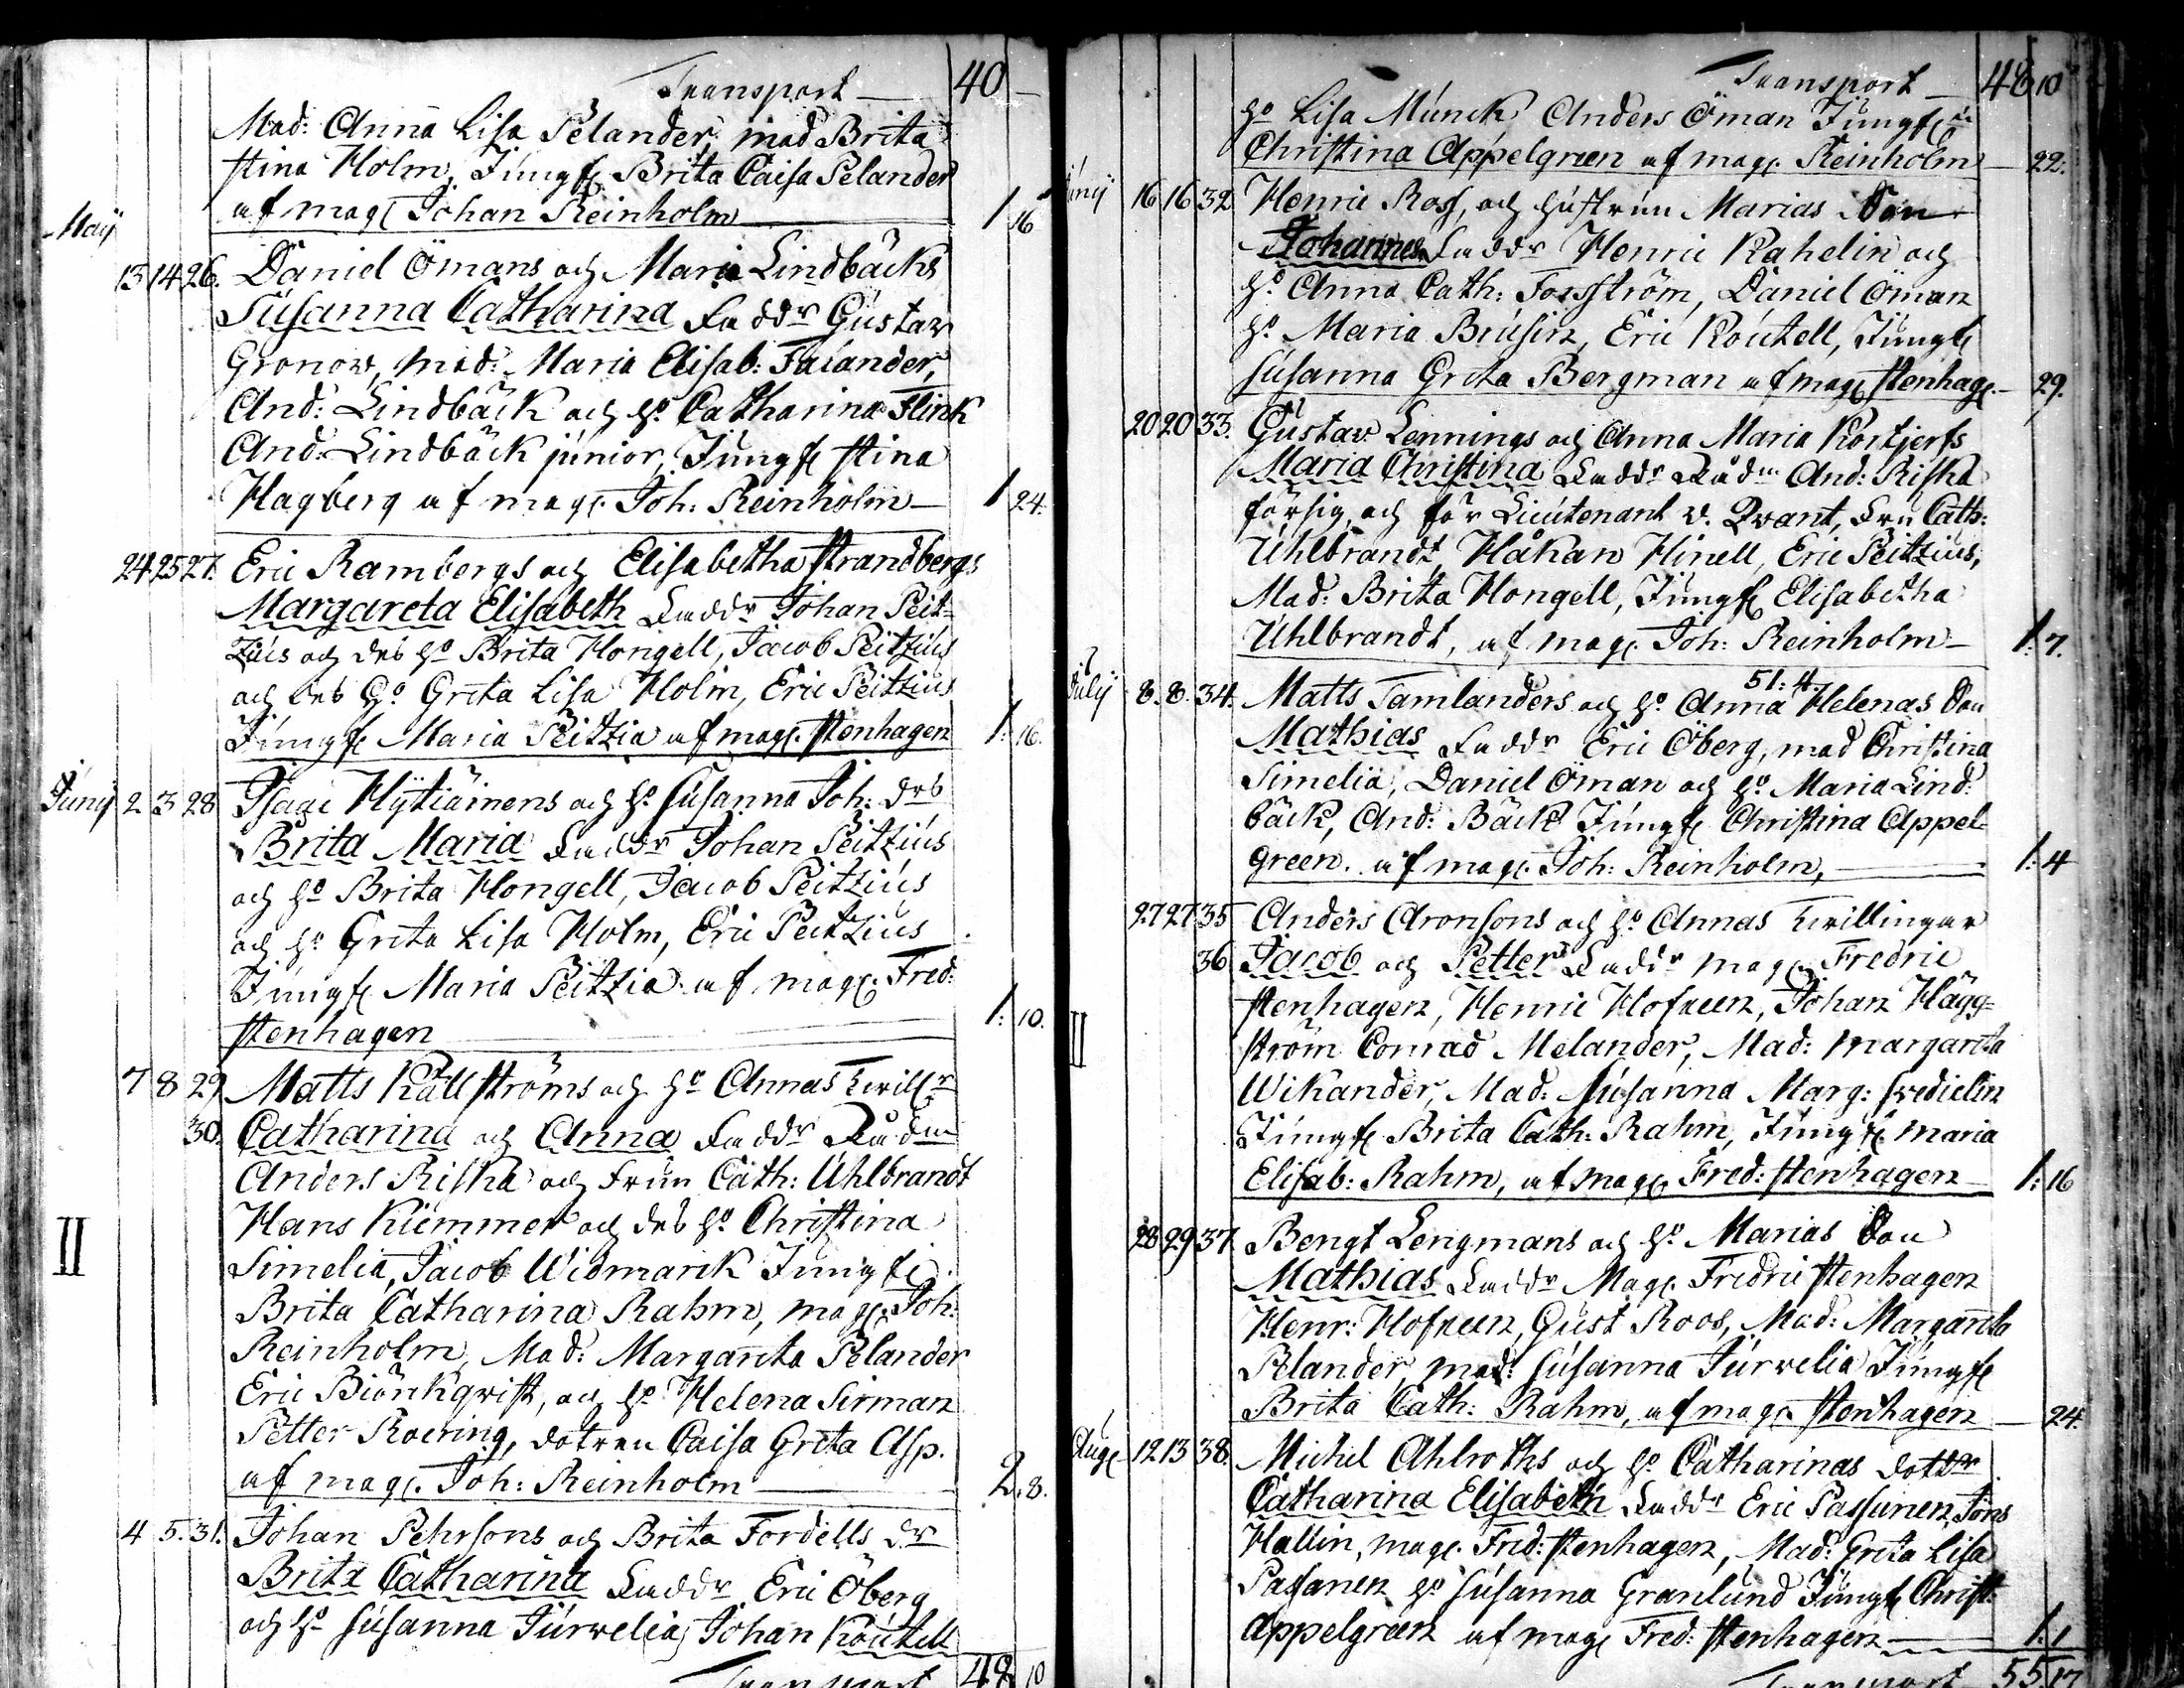 Transport — 40 —
Mad: Anna Lisa Pelander, mad Brita
Stina Holm, Jungf: Brita Caisa Pelander
af mag: Johan Reinholm — 1 16
Maij
13 14 26. Daniel Ömans och Maria Lindbäcks
Susanna Catharina Faddr Gustav
Gronow, mad: Maria Elisab: Falander,
And: Lindbäck och h: Catharina Flink
And: Lindbäck junior, Jungf Stina
Hagberg af mag: Joh: Reinholm — 1 24.
24 25 27. Eric Rambergs och Elisabetha Strandbergs
Margareta Elisabeth Faddr Johan Peit-
zius och des h: Brita Hongell, Jacob Peitzius
och des h: Greta Lisa Holm, Eric Peitzius
Jungf: Maria Peitzia af mag: Stenhagen 1: 16.
Junij 2 3 28 Isaac Hytiäinens och h: Susanna Joh: drs
Brita Maria Faddr Johan Peitzius
och h: Brita Hongell, Jacob Peitzius
och h: Greta Lisa Holm, Eric Peitzius
Jungf: Maria Peitzia af mag: Fred:
Stenhagen 1: 10.
7 8 29 Matts Källströms och h: Annas Twill:r
30. Catharina och Anna Faddr Rådm
Anders Riska och Frun Cath: Uhlbrandt
Hans Kummer och des h: Christina
II
Simelia, Jacob Widmarck Jungf:
Brita Catharina Rahm, mag: Joh:
Reinholm, Mad: Margareta Pelander
Eric Biörkqvist, och h: Helena Sirman
Petter Roering, dotren Caisa Greta Asp.
af mag: Joh: Reinholm — 2. 8.
4 5. 31. Johan Pehrsons och Brita Fordells dr
Brita Catharina Faddr Eric Öberg
och h: Susanna Jurvelia, Johan Koutell
Transport 48 10
Transport — 48 10
h: Lisa Munck Anders Öman Jungf:
Christina Appelgreen af mag: Reinholm — 22.
Junij 16 16 32 Henric Ross, och hustrun Marias Son
Johannes Faddr Henric Rahelin och
h: Anna Cath: Forsström, Daniel Öman
h: Maria Brusin, Eric Koutell, Jungf:
Susanna Greta Bergman af mag: Stenhag: — 29.
20 20 33. Gustav Lennings och Anna Maria Kortjerfs
Maria Christina Faddr Rådm And: Riska
för sig, och för Lieutenant v. Qvant, Fru Cath:
Uhlbrandt, Håkan Hinell, Eric Peitzius,
Mad: Brita Hongell, Jungf: Elisabetha
Uhlbrandt, af mag: Joh: Reinholm — 1: 7.
51: 4.
Julij 8. 8. 34. Matts Tamlanders och h: Anna Helenas Son
Mathias Faddr Eric Öberg, mad Christina
Simelia, Daniel Öman och h: Maria Lind:
bäck, And: Bäck Jungf: Christina Appel-
green. af mag: Joh: Reinholm, — 1: 4
27 27 35 Anders Aronsons och h: Annas Twillingar
36 Jacob och Petter Faddr mag: Fredric
Stenhagen, Henric Hofreen, Johan Hägg-
II
ström Conrad Melander, Mad: Margareta
Wikander, Mad: Susanna Marg: Fredielin
Jungf: Brita Cath: Rahm, Jungf: Maria
Elisab: Rahm, af mag: Fred: Stenhagen — 1: 16
28 29 37 Bengt Lengmans och h: Marias Son
Mathias Faddr Mag: Fredric Stenhagen
Henr: Hofreen, Gust Roos, Mad: Margareta
Pelander, mad: Susanna Jurvelia Jungf:
Brita Cath: Rahm, af mag: Stenhagen — 24.
Aug: 12 13 38. Michel Ahlroths och h: Catharinas dotter
Catharina Elisabeth Faddr Eric Passunen, Jöns
Hallin, mag: Fred: Stenhagen, Mad: Greta Lisa
Passanen h: Susanna Granlund Jungf: Christ:
Appelgreen af mag: Fred: Stenhagen — 1. 1
Transport 55 17